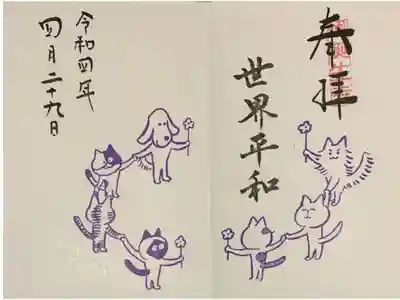 奉拝
世界平和
令和四年
四月二十九日